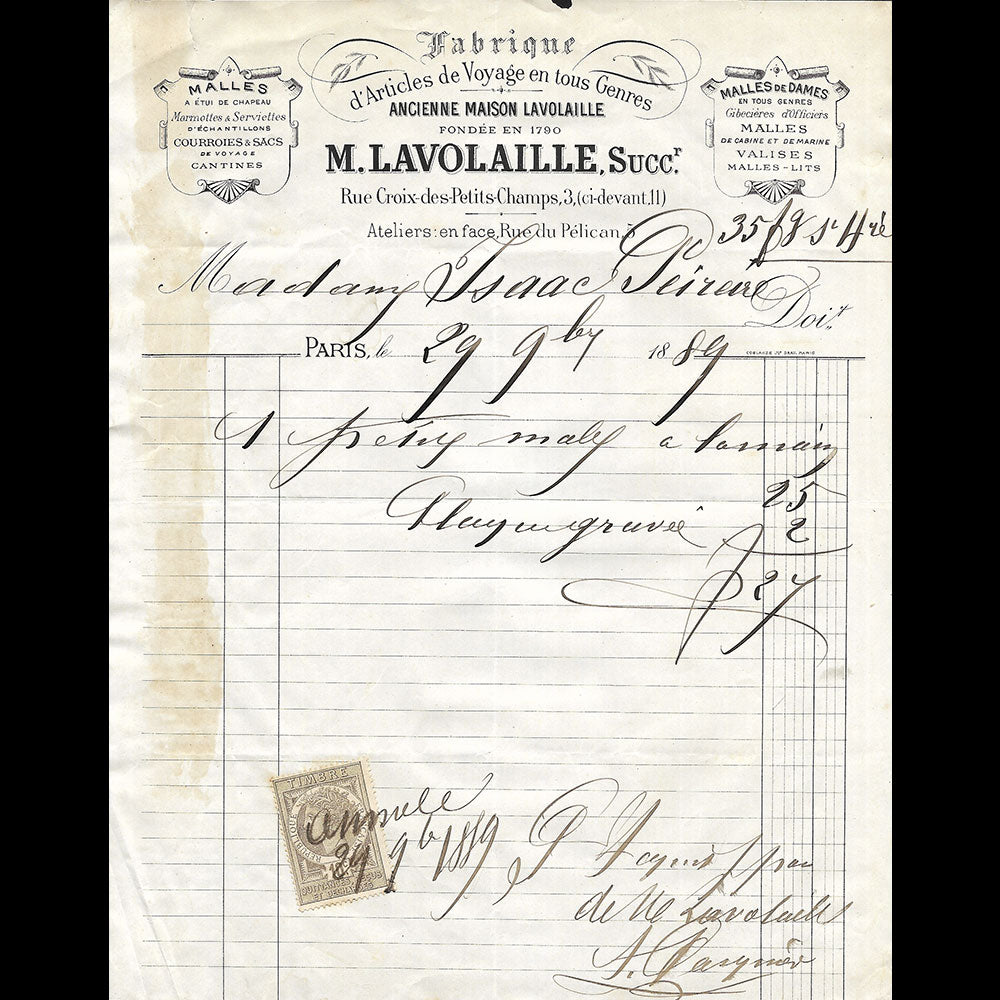 Fabrique
d'Articles de Voyage en tous Genres
ANCIENNE MAISON LAVOLAILLE
FONDÉE EN 1790
M. LAVOLAILLE, Succr.
Rue Croix-des-Petits-Champs, 3, (ci-devant, 11)
Ateliers: en face, Rue du Pélican, 5
MALLES
A ÉTUI DE CHAPEAU
Marmottes & Serviettes
D'ÉCHANTILLONS
COURROIES & SACS
DE VOYAGE
CANTINES
MALLES DE DAMES
EN TOUS GENRES
Gibecières d'Officiers
MALLES
DE CABINE ET DE MARINE
VALISES
MALLES-LITS
35 fg St H ré
Madame Isaac Péreire
Doit
PARIS, le 29 9bre 1889
1 petite malle a la main
25
Plaque gravée 2
27
TIMBRE
RÉPUBLIQUE
QUITTANCES, REÇUS
ET DÉCHARGES
Annulé
29 9b 1889
P Acquit
de Me Lavolaille